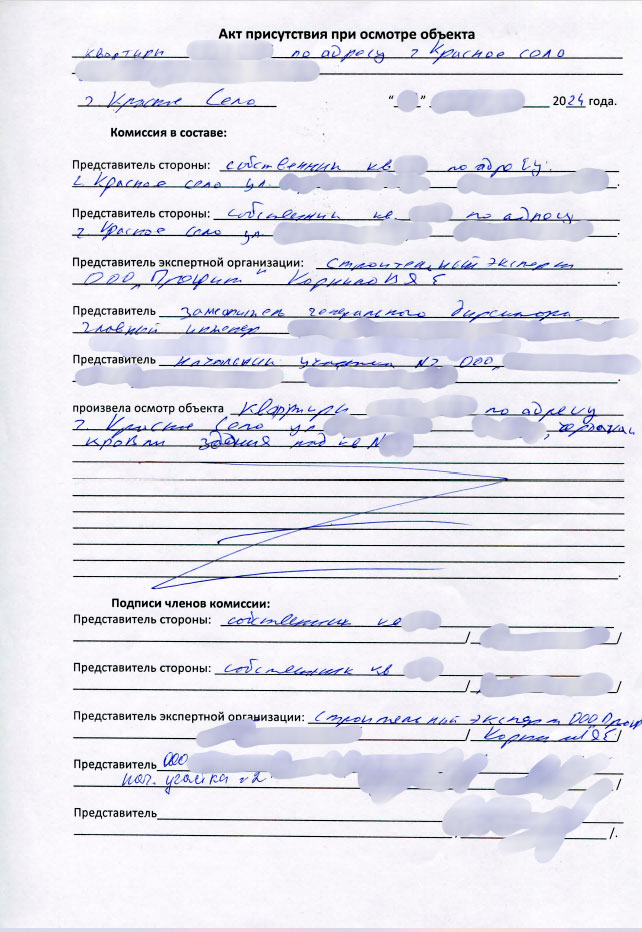 Акт присутствия при осмотре объекта
квартиры по адресу г Красное село
г. Красное Село "    " 2024 года.
Комиссия в составе:
Представитель стороны: собственник кв по адресу:
г. Красное село ул.
Представитель стороны: собственник кв. по адресу
г. Красное село ул
Представитель экспертной организации: строительный эксперт
ООО „Профит"
Представитель заместитель генерального директора,
главный инженер
Представитель начальник участка №2 ООО
произвела осмотр объекта квартиры по адресу
г. Красное Село ул ,
кровли здания над кв №
Подписи членов комиссии:
Представитель стороны: собственник кв
/ /
Представитель стороны: собственник кв
/ /
Представитель экспертной организации: строительный эксперт ООО
/ /
Представитель ООО
нач. участка №2 /
Представитель
/.